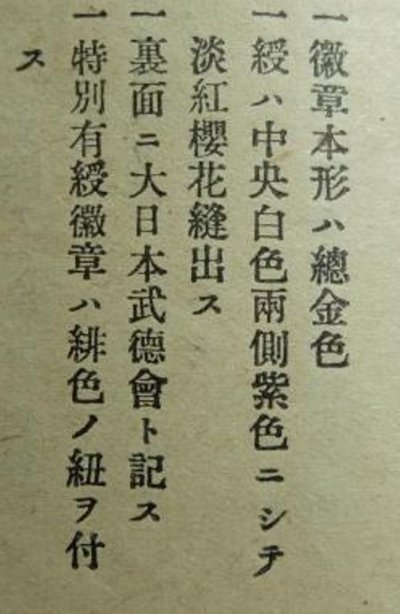 一徽章本形ハ總金色
一綬ハ中央白色兩側紫色ニシテ
淡紅櫻花縫出ス
一裏面ニ大日本武德會ト記ス
一特別有綬徽章ハ緋色ノ紐ヲ付
ス